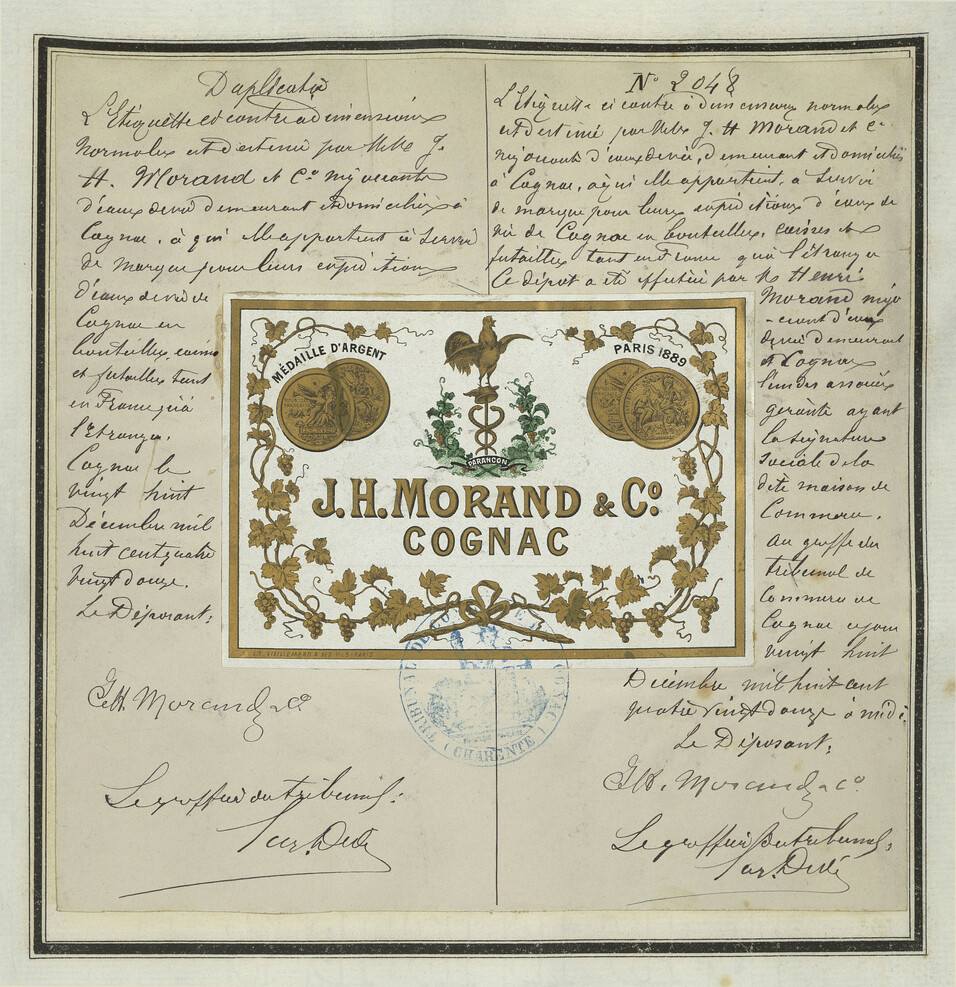 Duplicata
L'Etiquette ci contre a dimensions
normales est destinée par MMrs J.
H. Morand et Co négociants
d'eaux de vie demeurant et domiciliés à
Cognac, à qui elle appartient à servir
de marque pour leurs expéditions
d'eaux de vie de
Cognac en
bouteilles, caisses
et futailles tant
en France qu'à
l'Etranger.
Cognac le
vingt huit
Décembre mil
huit cent quatre
vingt douze.
Le Déposant:
J.H. Morand & Co
Le greffier du tribunal:
No 2048
L'Etiquette ci contre à dimensions normales
est destinée par MMrs J. H Morand et Co
négociants d'eaux de vie, demeurant et domiciliés
à Cognac, à qui elle appartient, à servir
de marque pour leurs expéditions d'eaux de
vie de Cognac en bouteilles, caisses et
futailles tant en France qu'à l'étranger
Ce dépot a été effectué par M Henri
Morand négo
-ciant d'eaux
de vie demeurant
à Cognac
l'un des associés
gérants ayant
la signature
sociale de la
dite maison de
Commerce.
Au greffe du
tribunal de
Commerce de
Cognac ce jour
vingt huit
Décembre mil huit cent
quatre vingt douze à midi.
Le Déposant:
J.H. Morand & Co.
Le greffier du tribunal:
MÉDAILLE D'ARGENT
PARIS 1889
PARANGON
J.H. MORAND & Co.
COGNAC
LIT. VIEILLEMARD & SES FILS-PARIS
TRIBUNAL DE COMMERCE DE COGNAC
(CHARENTE)